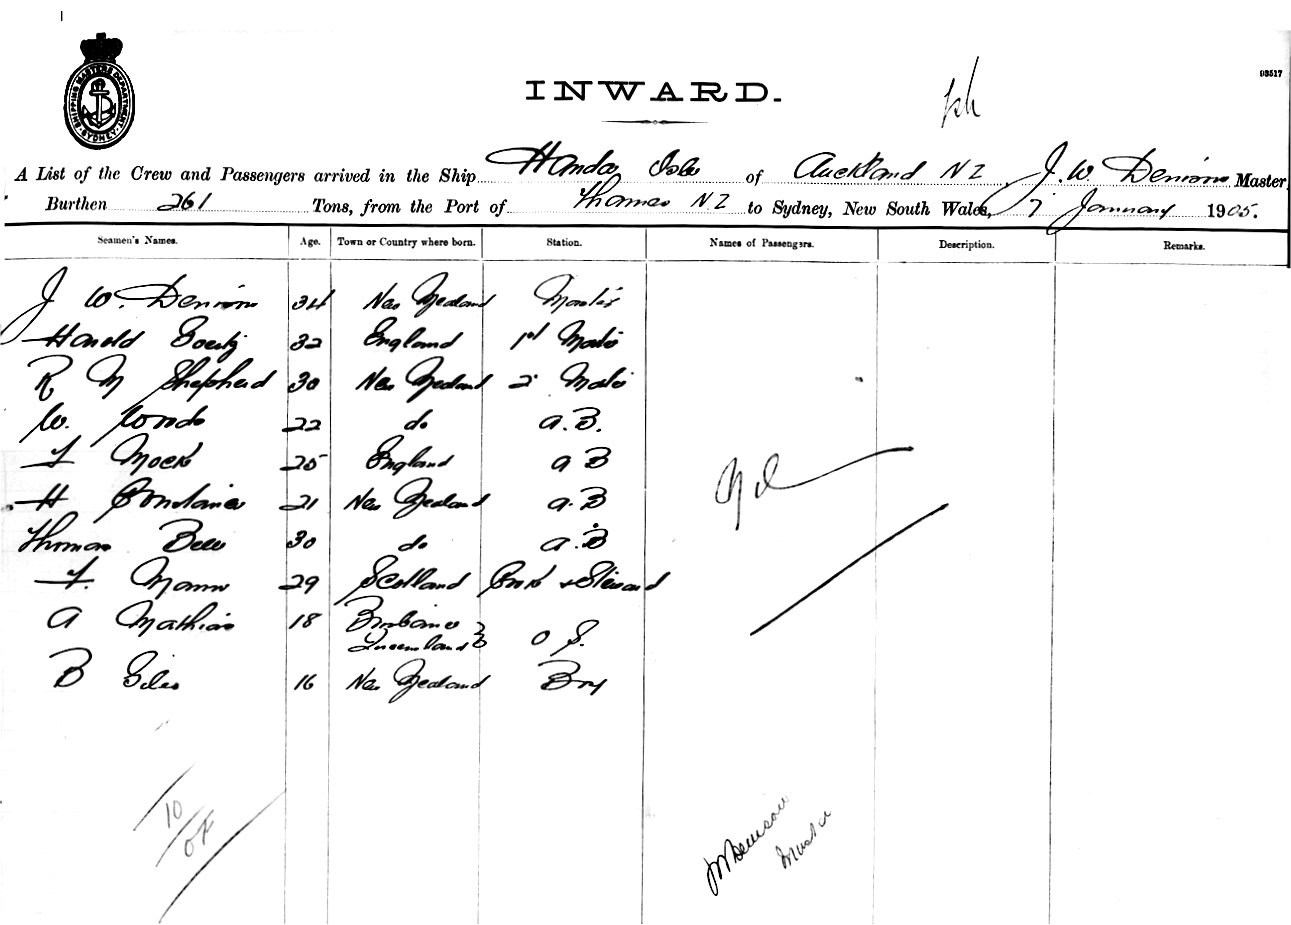 SHIPPING MASTERS DEPARTMENT SYDNEY
93517
INWARD.
A List of the Crew and Passengers arrived in the Ship Handa Isle of Auckland NZ J. W. Denison Master
Burthen 261 Tons, from the Port of Thames NZ to Sydney, New South Wales, 7 January 1905.
Seamen's Names. Age. Town or Country where born. Station. Names of Passengers. Description. Remarks.
J W. Denison 34 New Zealand Master
Harold 32 England 1st Mate
R M Shepherd 30 New Zealand 2 Mate
W. Woods 22 do A.B.
Mock 25 England A B
H Constance 21 New Zealand A.B
Thomas Bell 30 do A.B
Mann 29 Scotland Cook & Steward
A Mathias 18 Brisbane
Queensland O S.
B Giles 16 New Zealand Boy
Nil
10
JW Denison
Master